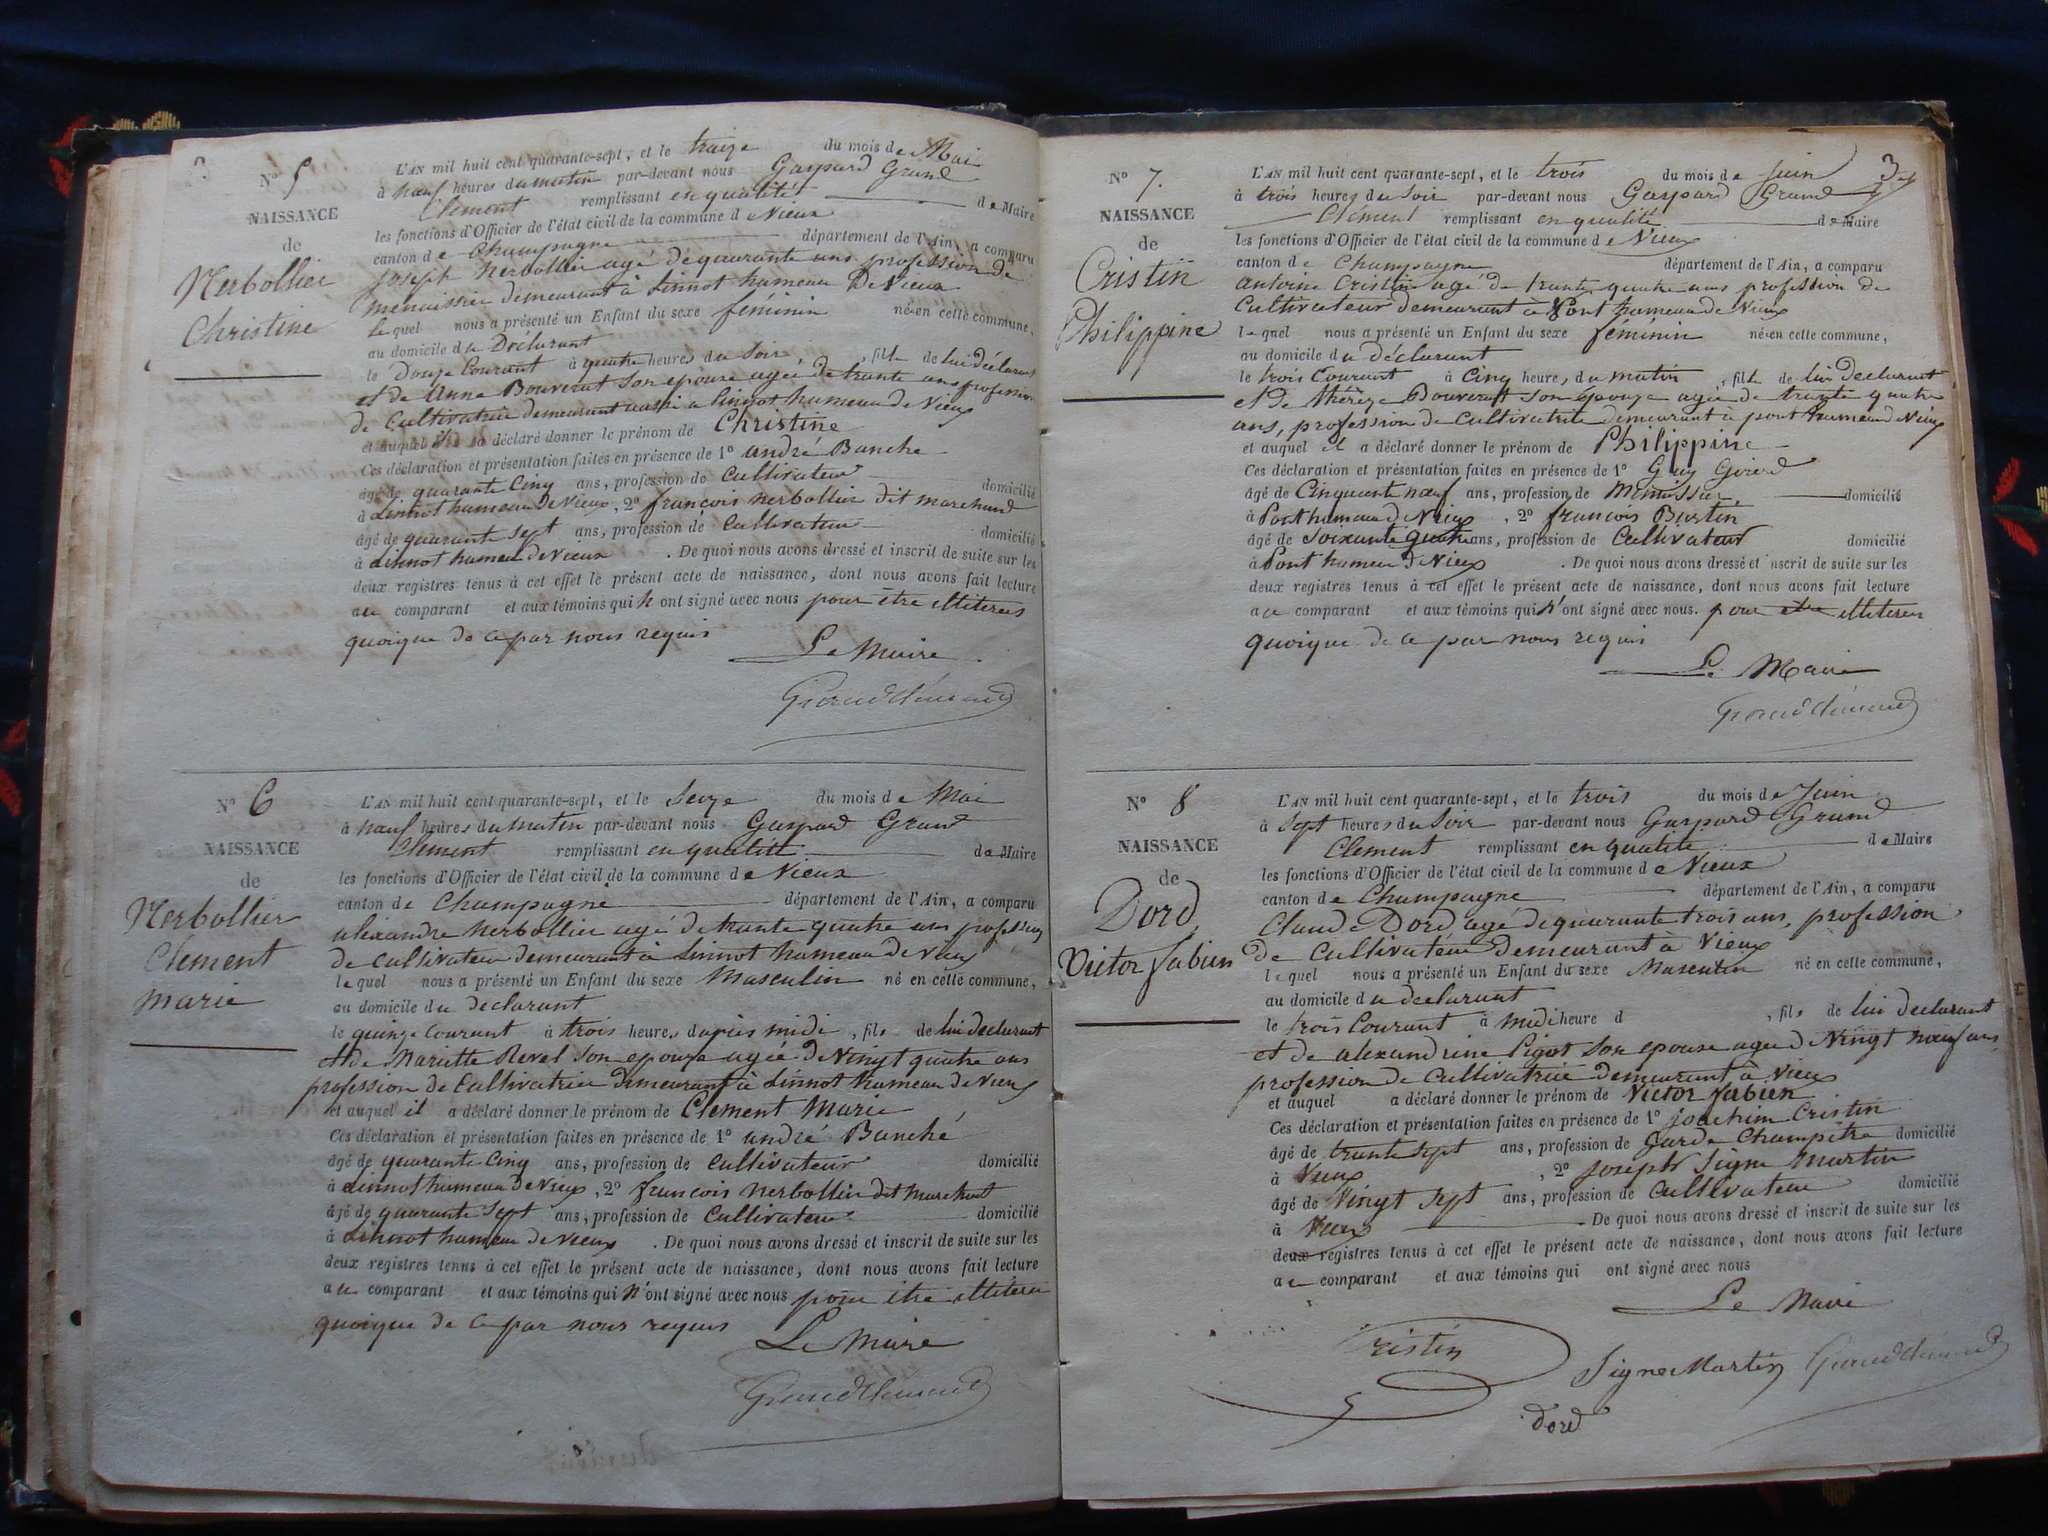 N° 5
NAISSANCE
de
Nerbollier
Christine
L'AN mil huit cent quarante-sept, et le traize du mois de Mai
à nauf heures du matin par-devant nous Gaspard Grand
Clement remplissant en qualité de Maire
les fonctions d'Officier de l'état civil de la commune de Vieux
canton de Champagne département de l'Ain, a comparu
joseph Nerbollier agé de quarante ans profession de
menuissier demeurant à Linnot hameau De Vieux
lequel nous a présenté un Enfant du sexe féminin née en cette commune,
au domicile du Déclarant
le Douze Courant à quatre heures du Soir, fille de lui déclarant
et de Anne Bouverat Son epouse agée de trante ans profession
de Cultivatrice demeurant aussi a Linnot hameau de Vieux
et auquel il a déclaré donner le prénom de Christine
Ces déclaration et présentation faites en présence de 1° andré Banche
âgé de quarante Cinq ans, profession de Cultivateur domicilié
à Linnot hameau de Vieux, 2° françois nerbollier dit marchand
âgé de quarante sept ans, profession de Cultivateur domicilié
à Linnot hameau de Vieux . De quoi nous avons dressé et inscrit de suite sur les
deux registres tenus à cet effet le présent acte de naissance, dont nous avons fait lecture
au comparant et aux témoins qui n ont signé avec nous pour être illiterés
quoique de ce par nous requis
Le Maire
Grand Clément
N° 6
NAISSANCE
de
Nerbollier
Clement
marie
L'AN mil huit cent quarante-sept, et le Seize du mois de Mai
à nauf heures du matin par-devant nous Gaspard Grand
Clement remplissant en qualité de Maire
les fonctions d'Officier de l'état civil de la commune de Vieux
canton de Champagne département de l'Ain, a comparu
alixandre Nerbollier agé de trante quatre ans profession
de Cultivateur demeurant à Linnot hameau de Vieux
lequel nous a présenté un Enfant du sexe Masculin né en cette commune,
au domicile du declarant
le quinze Courant à trois heures d'apiès midi, fils de lui declarant
et de Mariette Revel Son epouse agée de Vingt quatre ans
profession de Cultivatrice demeurant à Linnot hameau de Vieux
et auquel il a déclaré donner le prénom de Clement Marie
Ces déclaration et présentation faites en présence de 1° andré Banché
âgé de quarante Cinq ans, profession de Cultivateur domicilié
à Linnot hameau de Vieux, 2° françois nerbollier dit Marchant
âgé de quarante Sept ans, profession de Cultivateur domicilié
à Linnot hameau de Vieux . De quoi nous avons dressé et inscrit de suite sur les
deux registres tenus à cet effet le présent acte de naissance, dont nous avons fait lecture
au comparant et aux témoins qui n'ont signé avec nous pour être illiterés
quoique de ce par nous requis
Le Maire
Grand Clément
3
N° 7.
NAISSANCE
de
Cristin
Philippine
L'AN mil huit cent quarante-sept, et le trois du mois de Juin
à trois heures du Soir par-devant nous Gaspard Grand
Clement remplissant en qualité de Maire
les fonctions d'Officier de l'état civil de la commune de Vieux
canton de Champagne département de l'Ain, a comparu
antoine Cristin agé de trante quatre ans profession de
Cultivateur demeurant à Pont hameau de Vieux
lequel nous a présenté un Enfant du sexe féminin née en cette commune,
au domicile du déclarant
le trois Courant à Cinq heures du matin, fille de lui declarant
et de thérèze Bouverat Son épouze agée de trante quatre
ans, profession de Cultivatrice demeurant à pont hameau de Vieux
et auquel il a déclaré donner le prénom de Philippine
Ces déclaration et présentation faites en présence de 1° Guy Girerd
âgé de Cinquante neuf ans, profession de Menuissier domicilié
à Pont hameau de Vieux, 2° françois Burtin
âgé de Soixante quatre ans, profession de Cultivateur domicilié
à Pont hameau de Vieux . De quoi nous avons dressé et inscrit de suite sur les
deux registres tenus à cet effet le présent acte de naissance, dont nous avons fait lecture
au comparant et aux témoins qui n'ont signé avec nous. pour etre illiteres
quoique de ce par nous requis
Le Maire
Grand Clément
N° 8
NAISSANCE
de
Dord
Victor fabien
L'AN mil huit cent quarante-sept, et le trois du mois de Juin
à Sept heures du Soir par-devant nous Gaspard Grand
Clement remplissant en qualité de Maire
les fonctions d'Officier de l'état civil de la commune de Vieux
canton de Champagne département de l'Ain, a comparu
Claude Dord agé de quarante trois ans, profession
de Cultivateur demeurant à Vieux
lequel nous a présenté un Enfant du sexe Masculin né en cette commune,
au domicile du declarant
le trois Courant à midi heure d , fils de lui declarant
et de alexandrine Pigot Son epouse agée de Vingt nœuf ans,
profession de Cultivatrice demeurant à Vieux
et auquel a déclaré donner le prénom de Victor fabien
Ces déclaration et présentation faites en présence de 1° joachim Cristin
âgé de trante sept ans, profession de garde Champêtre domicilié
à Vieux , 2° joseph Signe Martin
âgé de Vingt sept ans, profession de Cultivateur domicilié
à Vieux . De quoi nous avons dressé et inscrit de suite sur les
deux registres tenus à cet effet le présent acte de naissance, dont nous avons fait lecture
au comparant et aux témoins qui ont signé avec nous
Le Maire
Cristin
Signe Martin Grand Clément
Dord